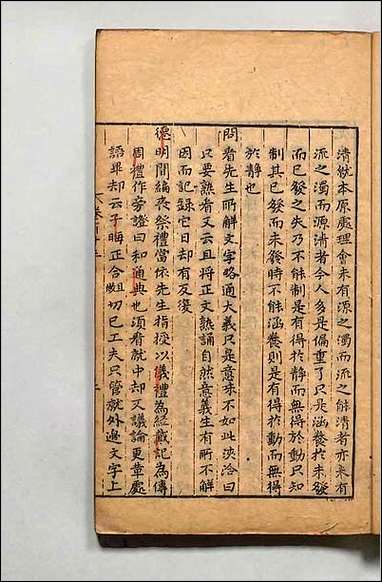 清欲本原處理會未有源之濁而流之能清者亦未有
流之濁而源清者今人多是偏重了只是涵養於未發
而已發之失乃不能制是有得於靜而無得於動只知
制其已發而未發時不能涵養則是有得於動而無得
於靜也
問看先生所解文字略通大義只是意味不如此浹洽曰
只要熟看又云且將正文熟誦自然意義生有所不解
因而記錄它日却有反復
德明問編喪祭禮當依先生指授以儀禮為經戴記為傳
周禮作旁證曰和通典也須看就中却又議論更革處
語畢却云子晦正合且切已工夫只管就外邊文字上